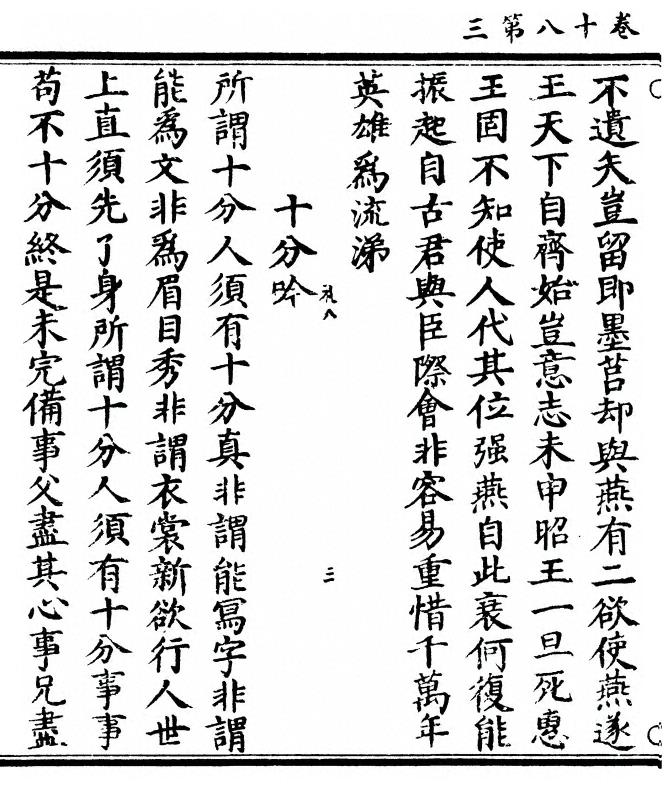 卷十八第三
不遺矢豈留即墨莒却與燕有二欲使燕遂
王天下自齊始豈意志未申昭王一旦死惠
王固不知使人代其位强燕自此衰何復能
振起自古君與臣際會非容易重惜千萬年
英雄爲流涕
十分吟
三
所謂十分人須有十分真非謂能寫字非謂
能爲文非爲眉目秀非謂衣裳新欲行人世
上直須先了身所謂十分人須有十分事事
苟不十分終是未完備事父盡其心事兄盡